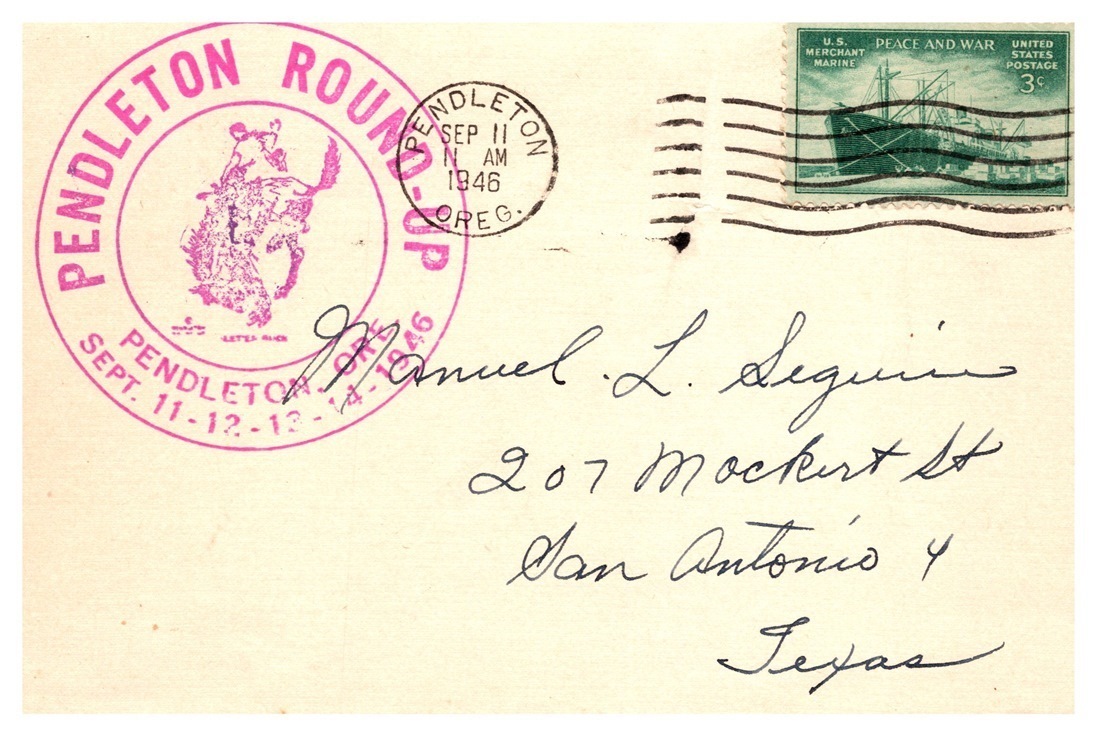 PENDLETON ROUND-UP
PENDLETON, ORE.
SEPT. 11-12-13-14-1946
PENDLETON
SEP 11
11 AM
1946
OREG.
U.S. MERCHANT MARINE
PEACE AND WAR
UNITED STATES POSTAGE
3¢
Manuel. L. Seguin
207 Mockert St
San Antonio 4
Texas